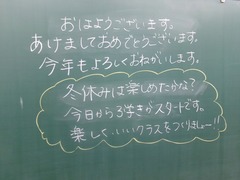 おはようございます。
あけましておめでとうございます。
今年もよろしくおねがいします。
冬休みは楽しめたかな?
今日から3学きがスタートです。
楽しく、いいクラスをつくりましょー!!